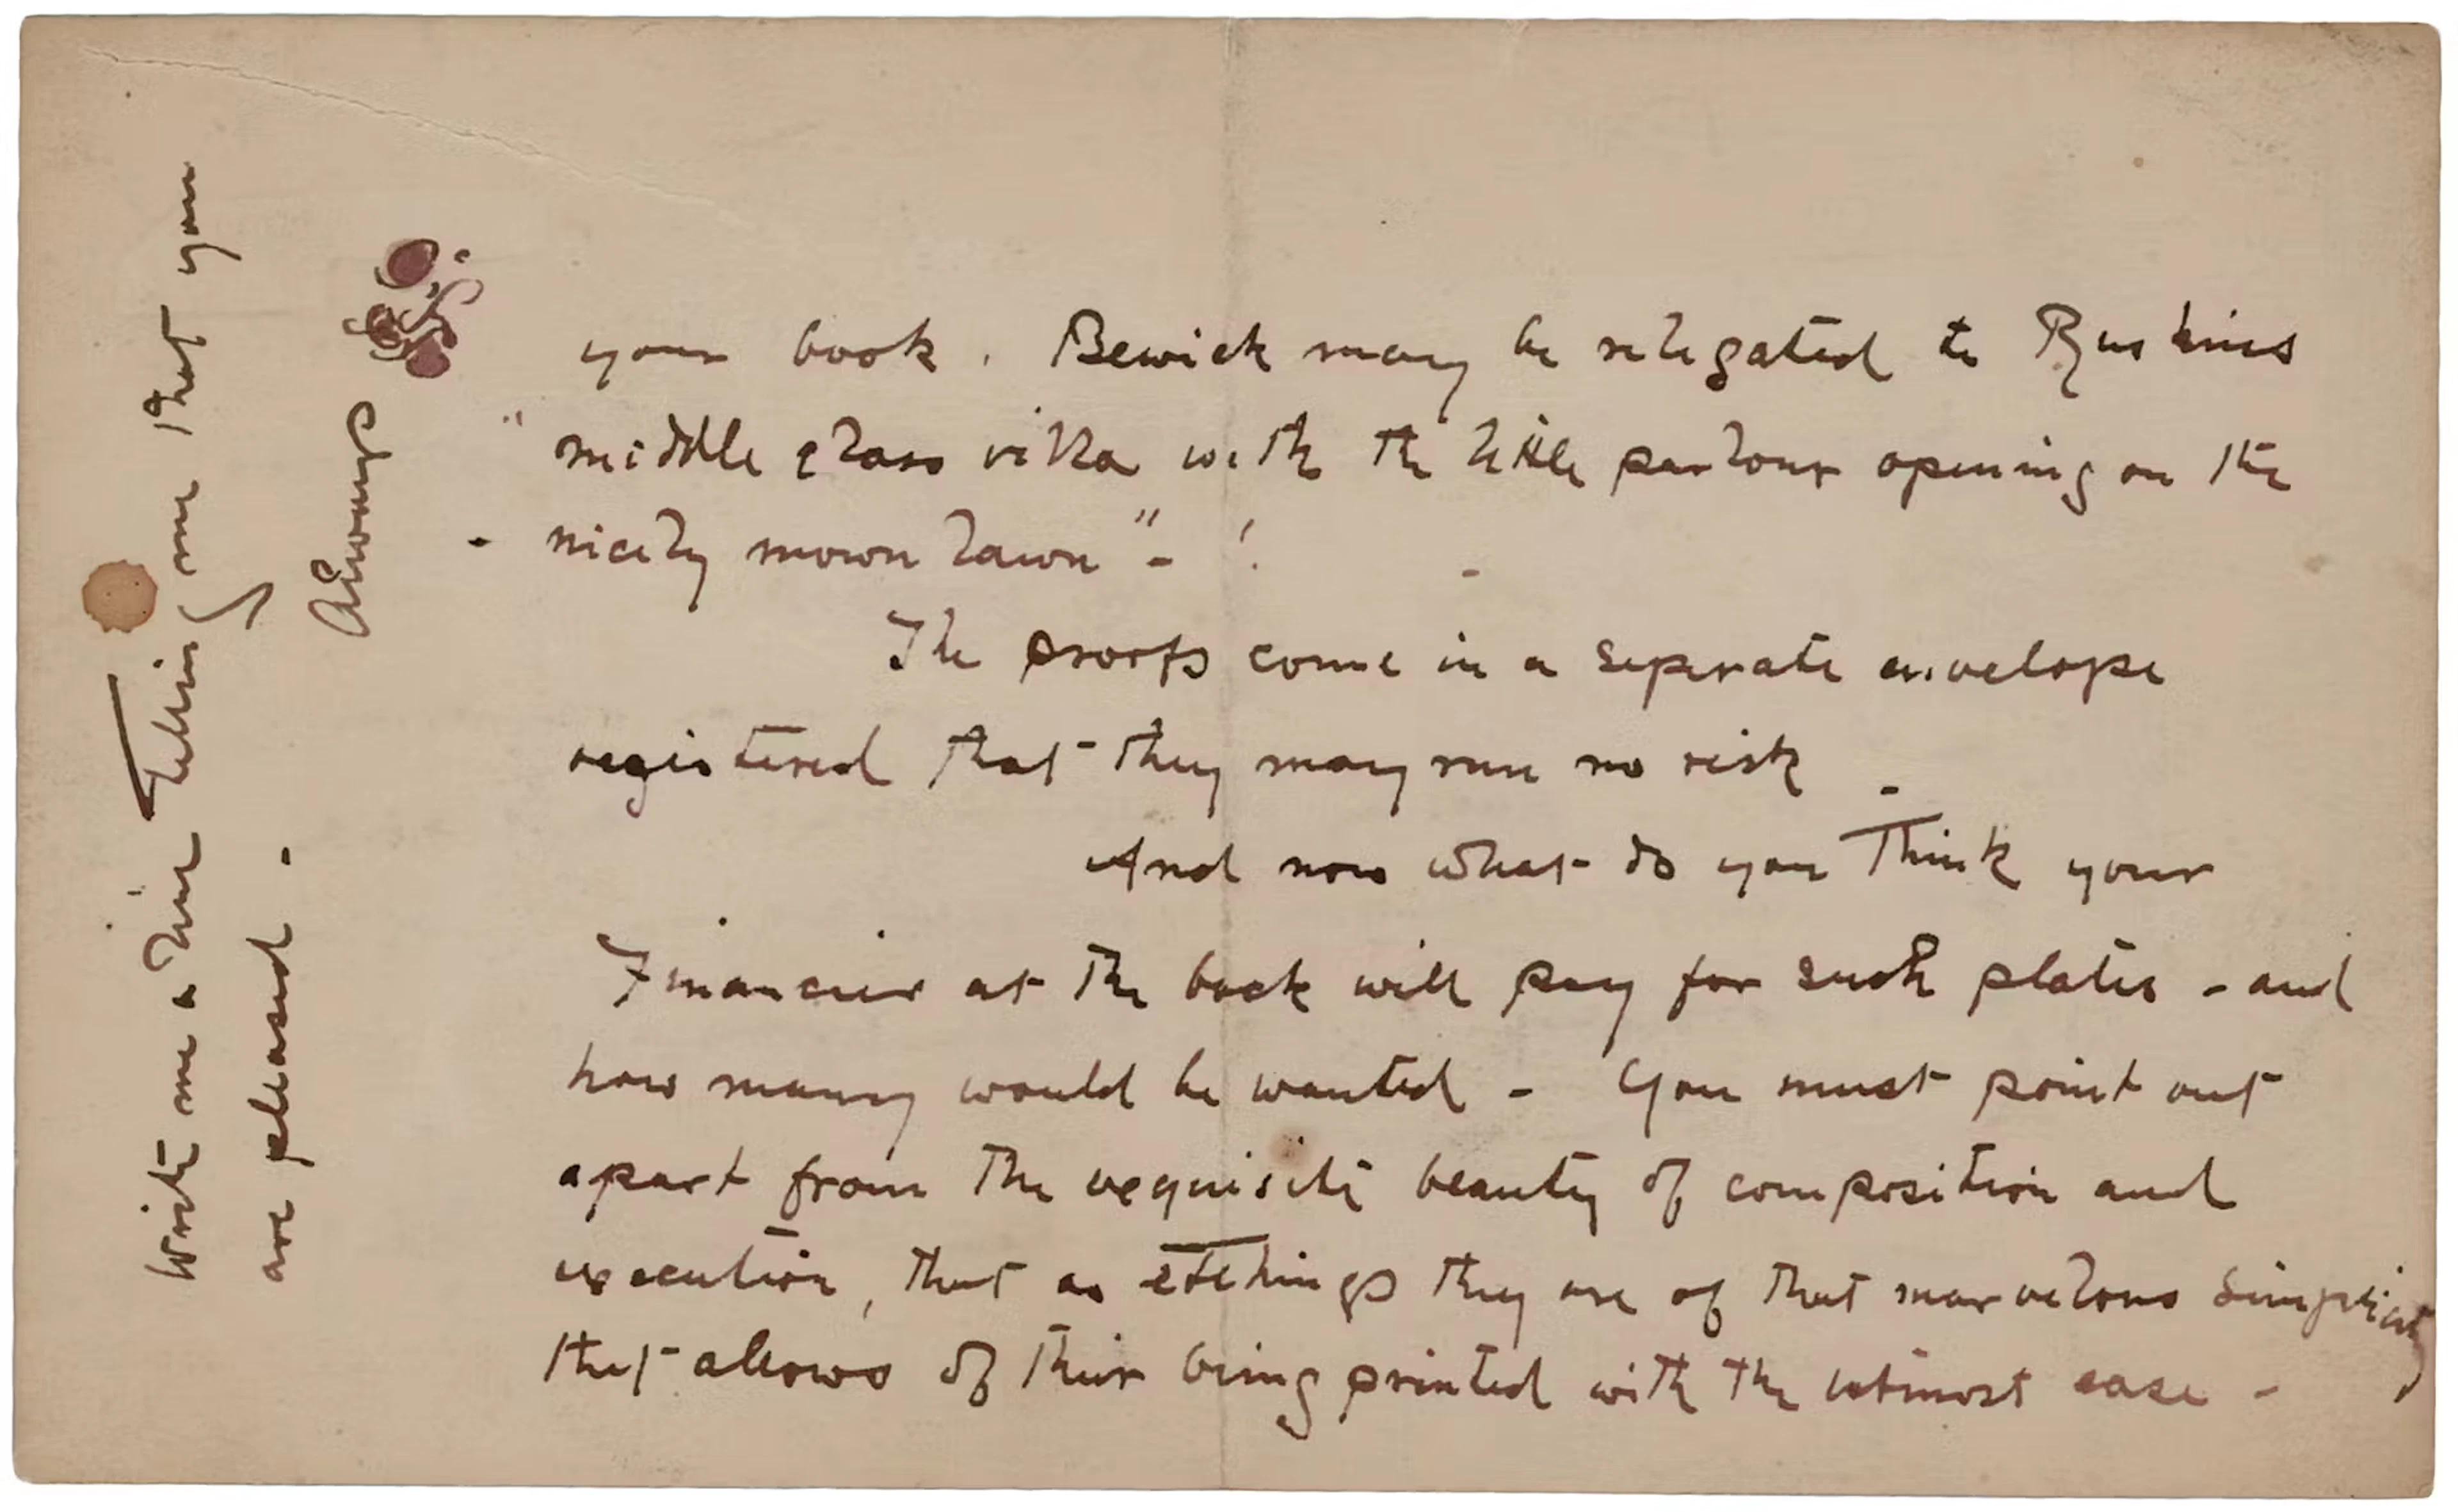 your book. Bewick may be relegated to Ruskins
"middle class villa with the little parlour opening on the
nicely mown lawn" - !
The proofs come in a seperate envelope
registered that they may run no risk -
And now what do you think your
Financier at the back will pay for such plates - and
how many would be wanted - You must point out
apart from the exquisite beauty of composition and
execution, that as etchings they are of that marvelous simplicity
that allows of their being printed with the utmost ease -
Write me a line telling me that you
are pleased -
Always